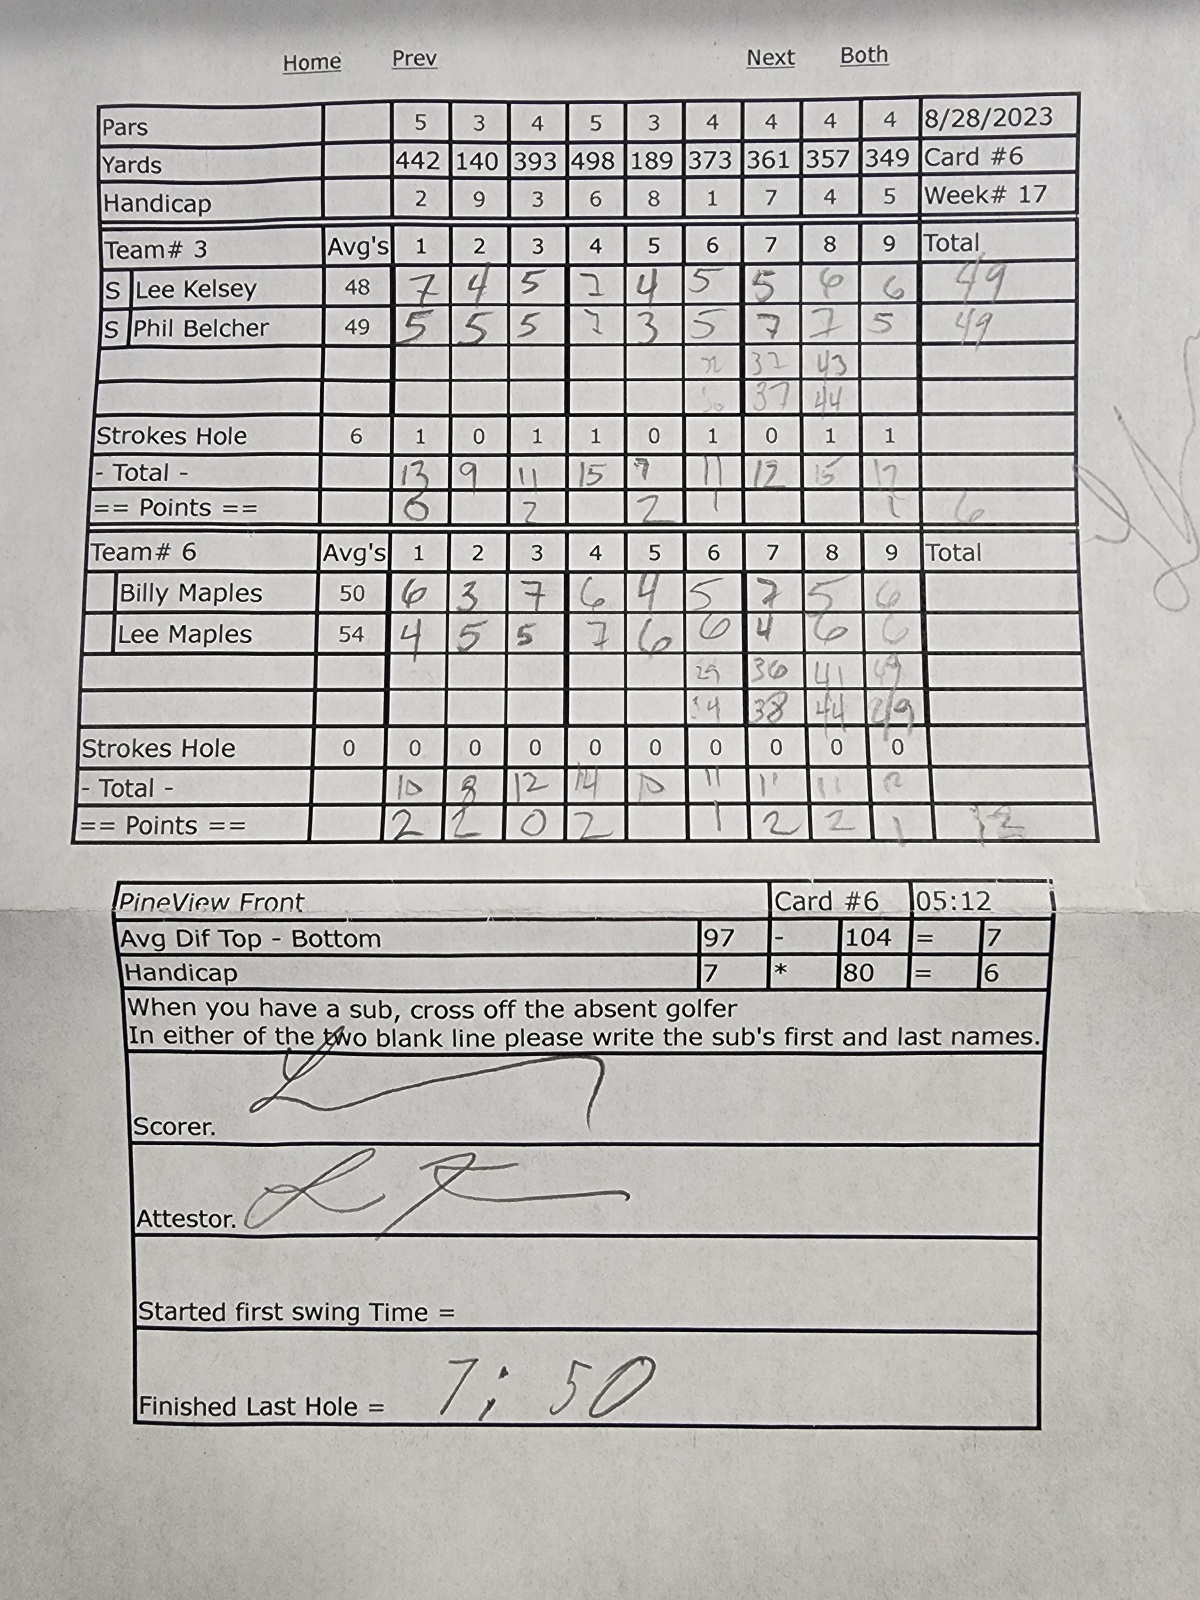 Home Prev Next Both
Pars 5 3 4 5 3 4 4 4 4 8/28/2023
Yards 442 140 393 498 189 373 361 357 349 Card #6
Handicap 2 9 3 6 8 1 7 4 5 Week# 17
Team# 3 Avg's 1 2 3 4 5 6 7 8 9 Total
S Lee Kelsey 48 7 4 5 7 4 5 5 6 6 49
S Phil Belcher 49 5 5 5 7 3 5 7 7 5 49
37 43
37 44
Strokes Hole 6 1 0 1 1 0 1 0 1 1
- Total - 13 9 11 15 7 11 12 15 12
== Points == 0 2 2 1 1 6
Team# 6 Avg's 1 2 3 4 5 6 7 8 9 Total
Billy Maples 50 6 3 7 6 4 5 7 5 6
Lee Maples 54 4 5 5 7 6 6 4 6 6
36 41 49
38 44 49
Strokes Hole 0 0 0 0 0 0 0 0 0 0
- Total - 10 8 12 14 10 11 11 11 12
== Points == 2 2 0 2 1 2 2 1 12
PineView Front Card #6 05:12
Avg Dif Top - Bottom 97 - 104 = 7
Handicap 7 * 80 = 6
When you have a sub, cross off the absent golfer
In either of the two blank line please write the sub's first and last names.
Scorer.
Attestor.
Started first swing Time =
Finished Last Hole = 7:50